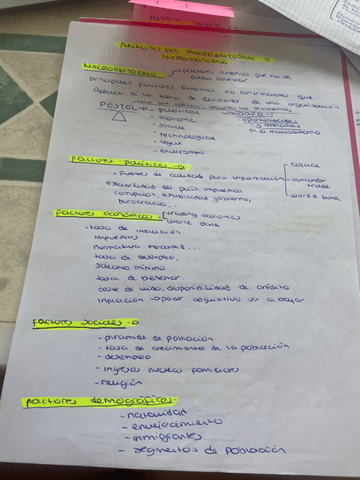 ANALISIS DEL MACROENTORNO Y
MICROENTORNO
MACROENTORNO factores externos que no se
puede controlar
principales factores externos no controlables que
afecta a la toma de decisiones de una organización
PESTEL políticos
- económic
- social
- technologicas
- legal
- enviroment
DAFO
oportunidades
factores políticos
- Fuentes de calidad para información
coface
santander
trade
world bank
estabilidad del país, impuestos
corrupción, estabilidad gobierno,
burocracia...
factores económicos
trading economics
world bank
- tasa de inflación
impuestos
normativa mercantil..
tasa de desempleo,
salario mínimo
tasa de bienestar
coste de vida, disponibilidad de crédito
inflación poder adquisitivo va a bajar
factores sociales
- piramide de población
- tasa de crecimiento de la población
- desempleo
- ingresos nucleos familiares
- religión
factores demográficos
- natalidad
- envejecimiento
- inmigrantes
- segmentos de población